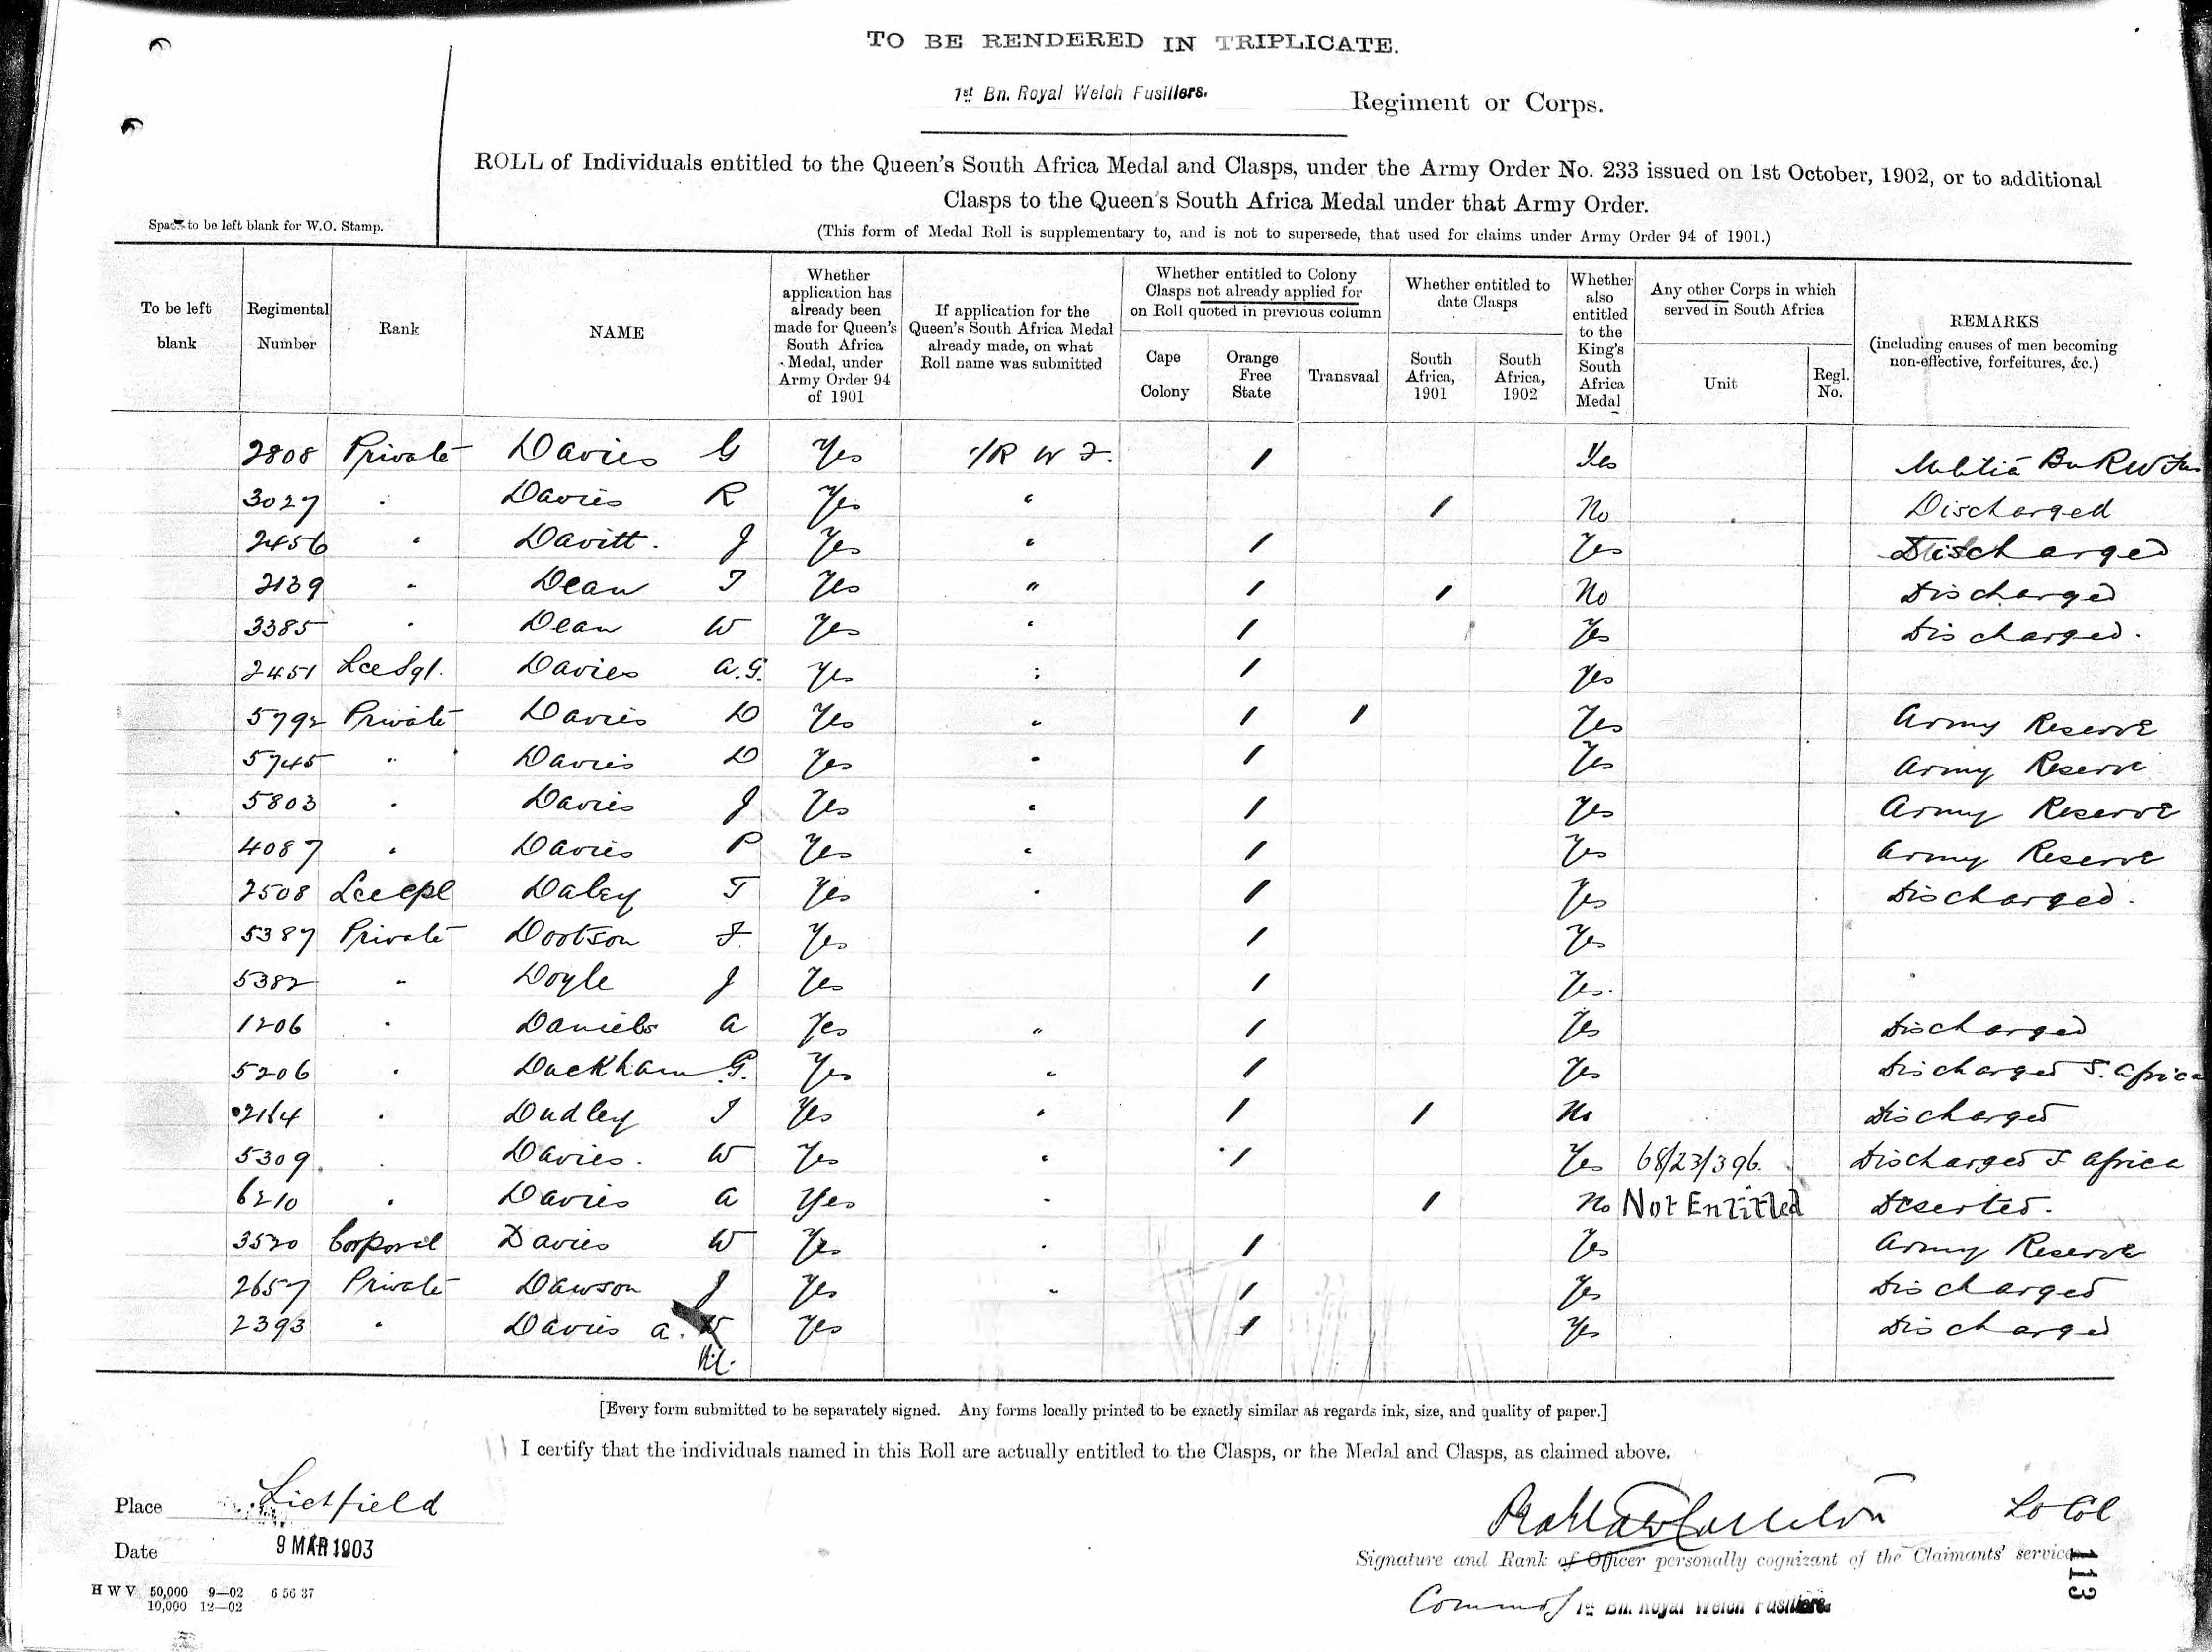 TO BE RENDERED IN TRIPLICATE.
1st Bn. Royal Welch Fusiliers. Regiment or Corps.
ROLL of Individuals entitled to the Queen's South Africa Medal and Clasps, under the Army Order No. 233 issued on 1st October, 1902, or to additional
Clasps to the Queen's South Africa Medal under that Army Order.
Space to be left blank for W.O. Stamp.
(This form of Medal Roll is supplementary to, and is not to supersede, that used for claims under Army Order 94 of 1901.)
To be left blank
Regimental Number
Rank
NAME
Whether application has already been made for Queen's South Africa Medal, under Army Order 94 of 1901
If application for the Queen's South Africa Medal already made, on what Roll name was submitted
Whether entitled to Colony Clasps not already applied for on Roll quoted in previous column
Cape Colony
Orange Free State
Transvaal
Whether entitled to date Clasps
South Africa, 1901
South Africa, 1902
Whether also entitled to the King's South Africa Medal
Any other Corps in which served in South Africa
Unit
Regl. No.
REMARKS
(including causes of men becoming non-effective, forfeitures, &c.)
2808 Private Davies G Yes 1/R W F. 1 Yes Militia Bn R W Fus
3027 " Davies R Yes " 1 No Discharged
2456 " Davitt. J Yes " 1 Yes Discharged
2139 " Dean T Yes " 1 1 No Discharged
3385 " Dean W Yes " 1 Yes Discharged.
2451 Lce Sgt. Davies A.G. Yes " 1 Yes
5792 Private Davies D Yes " 1 1 Yes Army Reserve
5745 " Davies D Yes " 1 Yes Army Reserve
5803 " Davies J Yes " 1 Yes Army Reserve
4087 " Davies P Yes " 1 Yes Army Reserve
2508 Lce Cpl Daley T Yes " 1 Yes Discharged.
5387 Private Dootson F. Yes 1 Yes
5382 " Doyle J Yes 1 Yes.
1206 " Daniels A Yes " 1 Yes Discharged
5206 " Duckham G. Yes " 1 Yes Discharged S. Africa
2164 " Dudley J Yes " 1 1 No Discharged
5309 " Davies. W Yes " 1 Yes 68/23/396. Discharged S Africa
6210 " Davies A Yes " 1 No Not Entitled Deserted.
3520 Corporal Davies W Yes " 1 Yes Army Reserve
2657 Private Dawson J Yes " 1 Yes Discharged
2393 " Davies A. W Yes 1 Yes Discharged
[Every form submitted to be separately signed. Any forms locally printed to be exactly similar as regards ink, size, and quality of paper.]
I certify that the individuals named in this Roll are actually entitled to the Clasps, or the Medal and Clasps, as claimed above.
Place Lichfield
Lt Col
Date 9 MAR 1903
Signature and Rank of Officer personally cognizant of the Claimants' service
H W V 50,000 9—02 6 56 37
10,000 12—02
Commdg 1st Bn. Royal Welch Fusiliers.
113